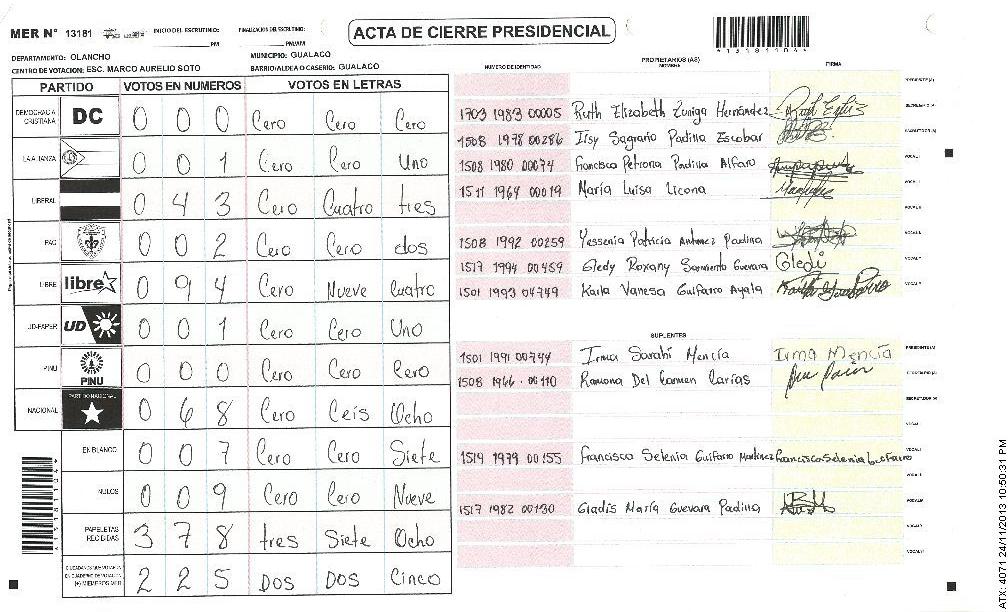 ACTA DE CIERRE PRESIDENCIAL
MER N° 13181 INICIO DEL ESCRUTINIO: PM FINALIZACION DEL ESCRUTINIO: PM/AM
DEPARTAMENTO: OLANCHO MUNICIPIO: GUALACO
CENTRO DE VOTACION: ESC. MARCO AURELIO SOTO BARRIO/ALDEA O CASERIO: GUALACO
PARTIDO VOTOS EN NUMEROS VOTOS EN LETRAS
DEMOCRACIA CRISTIANA DC 0 0 0 Cero Cero Cero
LA ALIANZA 0 0 1 Cero Cero Uno
LIBERAL 0 4 3 Cero Cuatro tres
PAC 0 0 2 Cero Cero dos
LIBRE libre 0 9 4 Cero Nueve Cuatro
UD-FAPER UD 0 0 1 Cero Cero Uno
PINU PINU 0 0 0 Cero Cero Cero
NACIONAL PARTIDO NACIONAL 0 6 8 Cero Ceis Ocho
EN BLANCO 0 0 7 Cero Cero Siete
NULOS 0 0 9 Cero Cero Nueve
PAPELETAS RECIBIDAS 3 7 8 tres Siete Ocho
CIUDADANOS QUE VOTARON EN CUADERNO DE VOTACION (+) MIEMBROS MER 2 2 5 DOS DOS Cinco
PROPIETARIOS (AS)
NUMERO DE IDENTIDAD NOMBRE FIRMA
PRESIDENTE (A)
1703 1983 00005 Ruth Elizabeth Zuniga Hernández SECRETARIO (A)
1508 1978 00286 Irsy Sagrario Padilla Escobar ESCRUTADOR (A)
1508 1980 00074 Francisca Petrona Padilla Alfaro VOCAL I
1511 1964 00019 María Luisa Licona VOCAL II
VOCAL III
1508 1992 00259 Yessenia Patricia Antunez Padilla VOCAL IV
1517 1994 00459 Gledy Roxany Sarmiento Guevara Gledi VOCAL V
1501 1993 04749 Karla Vanesa Guifarro Ayala VOCAL VI
SUPLENTES
1501 1991 00744 Irma Sarahi Mencía Irma Mencía PRESIDENTE (A)
1508 1966 00110 Ramona Del Carmen Carías SECRETARIO (A)
ESCRUTADOR (A)
VOCAL I
1519 1979 00155 Francisca Selenia Guifarro Martinez Francisca Selenia Guifarro VOCAL II
VOCAL III
1517 1982 00130 Gladis María Guevara Padilla VOCAL IV
VOCAL V
VOCAL VI
ATX: 4071 24/11/2013 10:50:31 PM